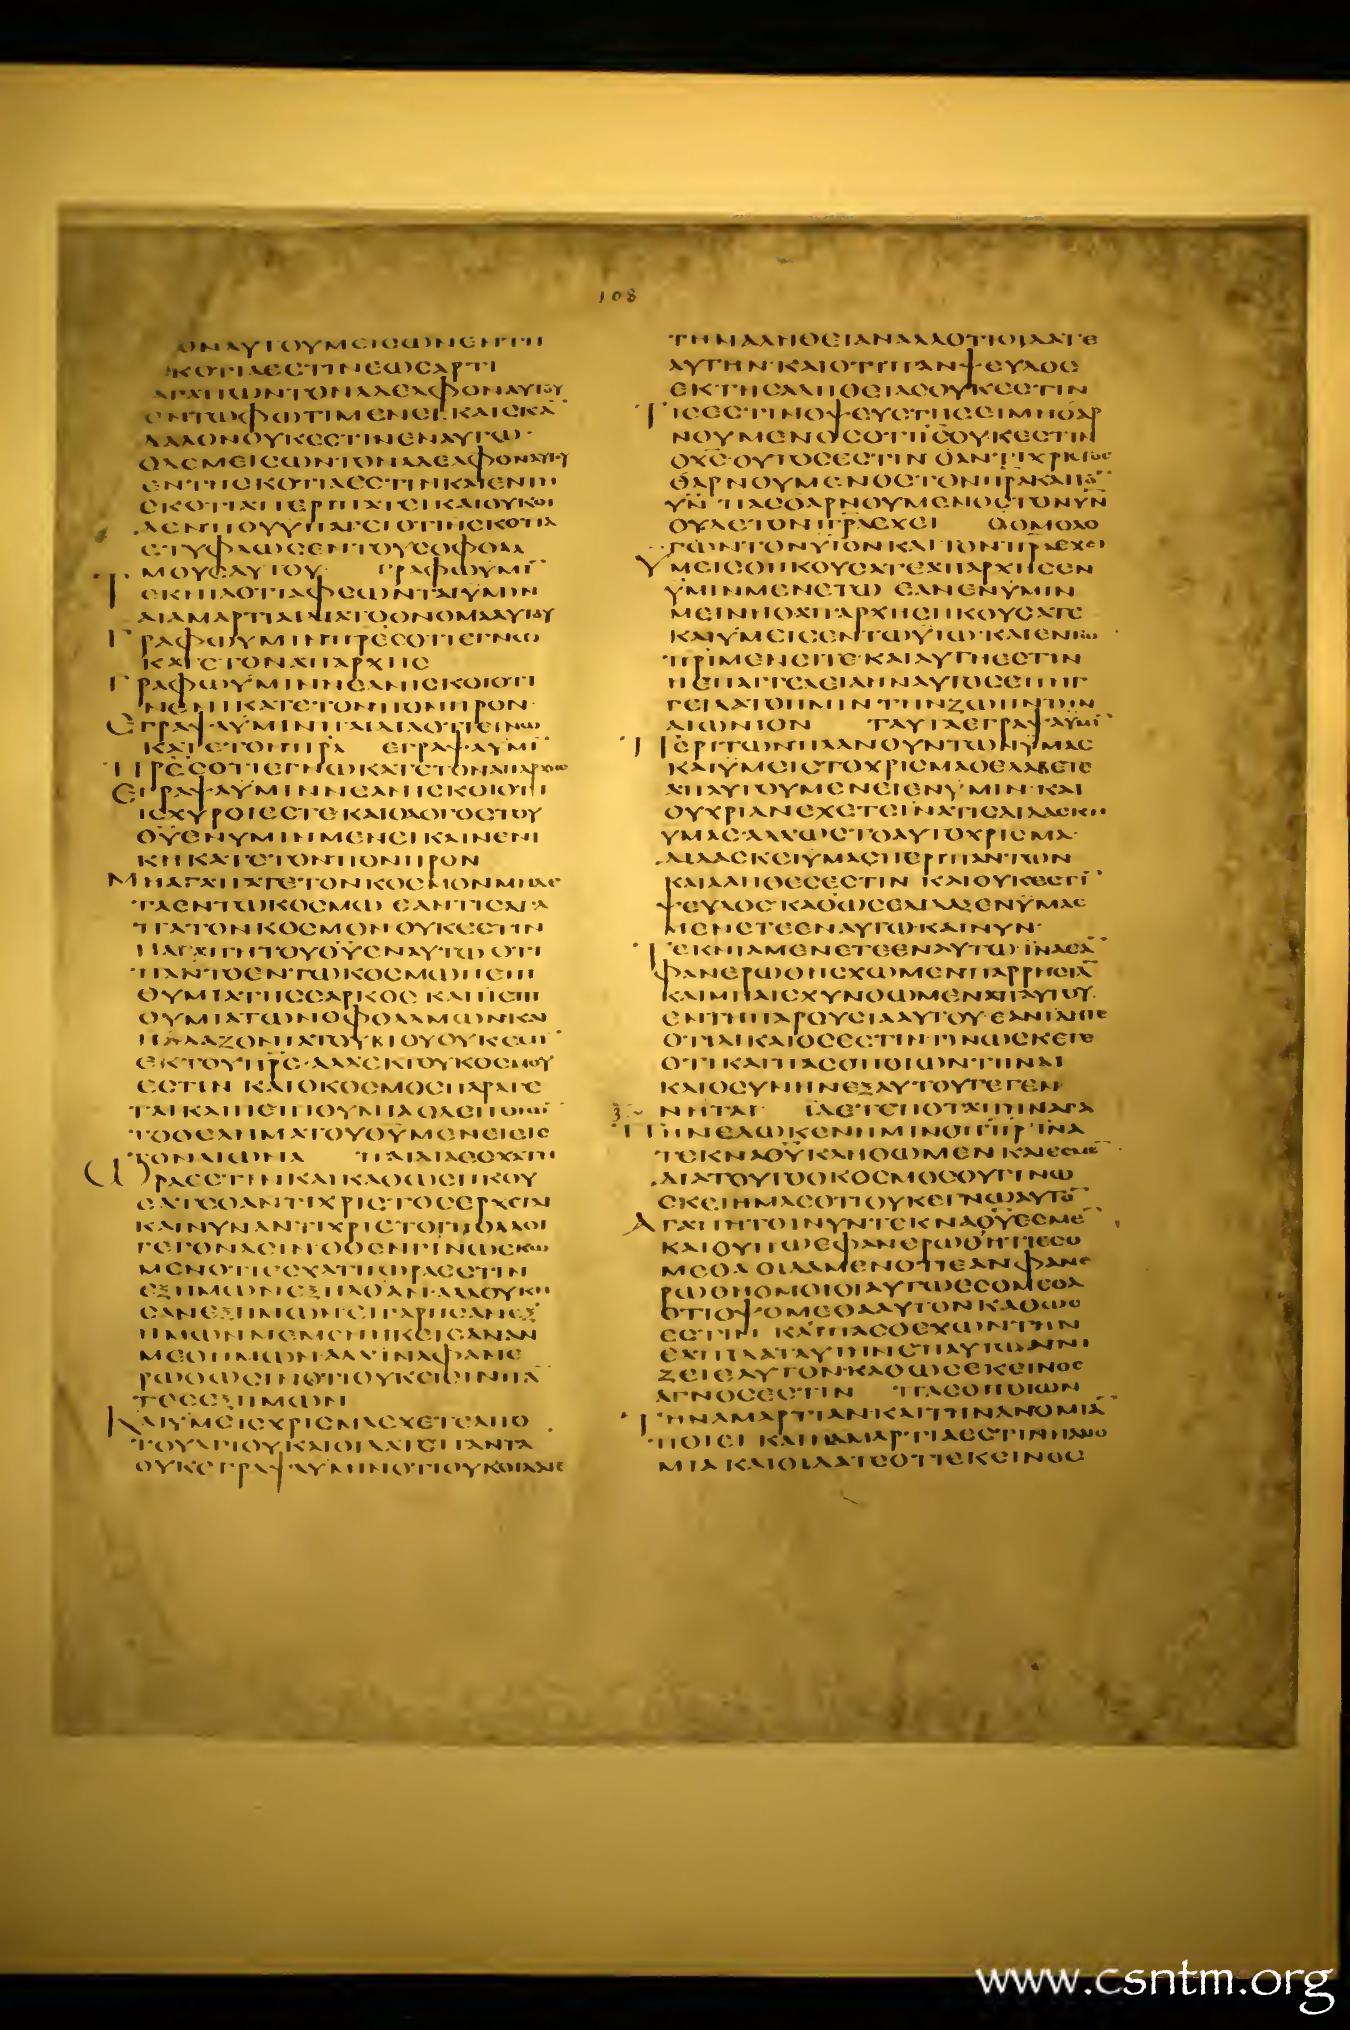 108
ΟΝΑΥΤΟΥΜΕΙϹΩΝΕΝΤΗ
ϹΚΟΤΙΑΕϹΤΙΝΕΩϹΑΡΤΙ
ΑΓΑΠΩΝΤΟΝΑΔΕΛΦΟΝΑΥΤΟΥ
ΕΝΤΩΦΩΤΙΜΕΝΕΙ· ΚΑΙϹΚΑ̅
ΔΑΛΟΝΟΥΚΕϹΤΙΝΕΝΑΥΤΩ·
ΟΔΕΜΕΙϹΩΝΤΟΝΑΔΕΛΦΟΝΑΥΤΟΥ
ΕΝΤΗϹΚΟΤΙΑΕϹΤΙΝΚΑΙΕΝΤΗ
ϹΚΟΤΙΑΠΕΡΙΠΑΤΕΙΚΑΙΟΥΚΟΙ
ΔΕΝΠΟΥΫΠΑΓΕΙΟΤΙΗϹΚΟΤΙΑ
ΕΤΥΦΛΩϹΕΝΤΟΥϹΟΦΘΑΛ
ΜΟΥϹΑΥΤΟΥ ΓΡΑΦΩΫΜΙ̅
ΤΕΚΝΙΑΟΤΙΑΦΕΩΝΤΑΙΫΜΙΝ
ΑΙΑΜΑΡΤΙΑΙΔΙΑΤΟΟΝΟΜΑΑΥΤΟΥ
ΓΡΑΦΩΫΜΙΝΠΡ̅Ε̅Ϲ̅ΟΤΙΕΓΝΩ
ΚΑΤΕΤΟΝΑΠΑΡΧΗϹ
ΓΡΑΦΩΫΜΙΝΝΕΑΝΙϹΚΟΙΟΤΙ
ΝΕΝΙΚΑΤΕΤΟΝΠΟΝΗΡΟΝ·
ΕΓΡΑΨΑΫΜΙΝΠΑΙΔΙΑΟΤΙΕΓΝΩ
ΚΑΤΕΤΟΝΠ̅Ρ̅Α̅ ΕΓΡΑΨΑΫΜΙ̅
Π̅Ρ̅Ε̅Ϲ̅ΟΤΙΕΓΝΩΚΑΤΕΤΟΝΑΠΑΡΧΗϹ
ΕΓΡΑΨΑΫΜΙΝΝΕΑΝΙϹΚΟΙΟΤΙ
ΙϹΧΥΡΟΙΕϹΤΕΚΑΙΟΛΟΓΟϹΤΟΥ
Θ̅Υ̅ΕΝΥΜΙΝΜΕΝΕΙΚΑΙΝΕΝΙ
ΚΗΚΑΤΕΤΟΝΠΟΝΗΡΟΝ
ΜΗΑΓΑΠΑΤΕΤΟΝΚΟϹΜΟΝΜΗΔΕ
ΤΑΕΝΤΩΚΟϹΜΩ ΕΑΝΤΙϹΑΓΑ
ΠΑΤΟΝΚΟϹΜΟΝΟΥΚΕϹΤΙΝ
ΗΑΓΑΠΗΤΟΥΘ̅Υ̅ΕΝΑΥΤΩΟΤΙ
ΠΑΝΤΟΕΝΤΩΚΟϹΜΩΗΕΠΙ
ΘΥΜΙΑΤΗϹϹΑΡΚΟϹ ΚΑΙΗΕΠΙ
ΘΥΜΙΑΤΩΝΟΦΘΑΛΜΩΝΚΑΙ
ΗΑΛΑΖΟΝΙΑΤΟΥΒΙΟΥΟΥΚΕϹΤΙ̅
ΕΚΤΟΥΠ̅Ρ̅Ϲ̅·ΑΛΛΕΚΤΟΥΚΟϹΜΟΥ
ΕϹΤΙΝ ΚΑΙΟΚΟϹΜΟϹΠΑΡΑΓΕ
ΤΑΙΚΑΙΗΕΠΙΘΥΜΙΑΟΔΕΠΟΙΩ̅
ΤΟΘΕΛΗΜΑΤΟΥΘ̅Υ̅ΜΕΝΕΙΕΙϹ
ΤΟΝΑΙΩΝΑ ΠΑΙΔΙΑΕϹΧΑΤΗ
ΩΡΑΕϹΤΙΝΚΑΙΚΑΘΩϹΗΚΟΥ
ϹΑΤΕΟΑΝΤΙΧΡΙϹΤΟϹΕΡΧΕΤΑΙ
ΚΑΙΝΥΝΑΝΤΙΧΡΙϹΤΟΙΠΟΛΛΟΙ
ΓΕΓΟΝΑϹΙΝ·ΟΘΕΝΓΙΝΩϹΚΟ
ΜΕΝΟΤΙΕϹΧΑΤΗΩΡΑΕϹΤΙΝ
ΕΞΗΜΩΝΕΞΗΛΘΑΝ·ΑΛΛΟΥΚΗ
ϹΑΝΕΞΗΜΩΝ·ΕΙΓΑΡΗϹΑΝΕΞ
ΗΜΩΝΜΕΜΕΝΗΚΕΙϹΑΝΑΝ
ΜΕΘΗΜΩΝ·ΑΛΛΙΝΑΦΑΝΕ
ΡΩΘΩϹΙΝΟΤΙΟΥΚΕΙϹΙΝΠΑ̅
ΤΕϹΕΞΗΜΩΝ
ΚΑΙΥΜΕΙϹΧΡΙϹΜΑΕΧΕΤΕΑΠΟ
ΤΟΥΑΓΙΟΥΚΑΙΟΙΔΑΤΕΠΑΝΤΑ
ΟΥΚΕΓΡΑΨΑΫΜΙΝΟΤΙΟΥΚΟΙΔΑΤΕ
ΤΗΝΑΛΗΘΕΙΑΝΑΛΛΟΤΙΟΙΔΑΤΕ
ΑΥΤΗΝ·ΚΑΙΟΤΙΠΑΝΨΕΥΔΟϹ
ΕΚΤΗϹΑΛΗΘΕΙΑϹΟΥΚΕϹΤΙΝ
ΤΙϹΕϹΤΙΝΟΨΕΥϹΤΗϹΕΙΜΗΟΑΡ
ΝΟΥΜΕΝΟϹΟΤΙΙ̅Ϲ̅ΟΥΚΕϹΤΙΝ
ΟΧ̅Ϲ̅·ΟΥΤΟϹΕϹΤΙΝΟΑΝΤΙΧΡΙϹΤΟϹ
ΟΑΡΝΟΥΜΕΝΟϹΤΟΝΠ̅Ρ̅Α̅ΚΑΙΤΟ̅
Υ̅Ν̅ ΠΑϹΟΑΡΝΟΥΜΕΝΟϹΤΟΝΥ̅Ν̅
ΟΥΔΕΤΟΝΠ̅Ρ̅Α̅ΕΧΕΙ ΟΟΜΟΛΟ
ΓΩΝΤΟΝΥΙΟΝΚΑΙΤΟΝΠ̅Ρ̅Α̅ΕΧΕΙ
ΥΜΕΙϹΟΗΚΟΥϹΑΤΕΑΠΑΡΧΗϹΕΝ
ΫΜΙΝΜΕΝΕΤΩ ΕΑΝΕΝΫΜΙΝ
ΜΕΙΝΗΟΑΠΑΡΧΗϹΗΚΟΥϹΑΤΕ
ΚΑΙΫΜΕΙϹΕΝΤΩΫΙΩ·ΚΑΙΕΝΤΩ
Π̅Ρ̅Ι̅ΜΕΝΕΙΤΕ·ΚΑΙΑΥΤΗΕϹΤΙΝ
ΗΕΠΑΓΓΕΛΕΙΑΗΝΑΥΤΟϹΕΠΗΓ
ΓΕΙΛΑΤΟΗΜΙΝΤΗΝΖΩΗΝΤΗΝ
ΑΙΩΝΙΟΝ ΤΑΥΤΑΕΓΡΑΨΑΫΜΙ̅
ΠΕΡΙΤΩΝΠΛΑΝΟΥΝΤΩΝΫΜΑϹ
ΚΑΙΫΜΕΙϹΤΟΧΡΙϹΜΑΟΕΛΑΒΕΤΕ
ΑΠΑΥΤΟΥΜΕΝΕΙΕΝΫΜΙΝ·ΚΑΙ
ΟΥΧΡΙΑΝΕΧΕΤΕΙΝΑΤΙϹΔΙΔΑϹΚΗ
ΥΜΑϹ·ΑΛΛΩϹΤΟΑΥΤΟΧΡΙϹΜΑ·
ΔΙΔΑϹΚΕΙΥΜΑϹΠΕΡΙΠΑΝΤΩΝ
ΚΑΙΑΛΗΘΕϹΕϹΤΙΝ ΚΑΙΟΥΚΕϹΤΙ̅
ΨΕΥΔΟϹΚΑΘΩϹΕΔΙΔΑΞΕΝΫΜΑϹ
ΜΕΝΕΤΕΕΝΑΥΤΩ·ΚΑΙΝΥΝ·
ΤΕΚΝΙΑΜΕΝΕΤΕΕΝΑΥΤΩ·ΪΝΑΕΑ̅
ΦΑΝΕΡΩΘΗϹΧΩΜΕΝΠΑΡΡΗϹΙΑ̅
ΚΑΙΜΗΑΙϹΧΥΝΘΩΜΕΝΑΠΑΥΤΟΥ·
ΕΝΤΗΠΑΡΟΥϹΙΑΑΥΤΟΥ·ΕΑΝΪΔΗΤΕ
ΟΤΙΔΙΚΑΙΟϹΕϹΤΙΝ·ΓΙΝΩϹΚΕΤΕ
ΟΤΙΚΑΙΠΑϹΟΠΟΙΩΝΤΗΝΔΙ
ΚΑΙΟϹΥΝΗΝΕΞΑΥΤΟΥΓΕΓΕΝ
ΝΗΤΑΙ ΪΔΕΤΕΠΟΤΑΠΗΝΑΓΑ
ΠΗΝΕΔΩΚΕΝΗΜΙΝΟΠ̅Η̅Ρ̅·ΪΝΑ
ΤΕΚΝΑΘ̅Υ̅ΚΛΗΘΩΜΕΝ ΚΑΙΕϹΜΕ̅
ΔΙΑΤΟΥΤΟΟΚΟϹΜΟϹΟΥΓΙΝΩ
ϹΚΕΙΗΜΑϹΟΤΙΟΥΚΕΓΝΩΑΥΤΟ̅
ΑΓΑΠΗΤΟΙΝΥΝΤΕΚΝΑΘ̅Υ̅ΕϹΜΕ̅
ΚΑΙΟΥΠΩΕΦΑΝΕΡΩΘΗΤΙΕϹΟ
ΜΕΘΑ ΟΙΔΑΜΕΝΟΤΙΕΑΝΦΑΝΕ
ΡΩΘΗΟΜΟΙΟΙΑΥΤΩΕϹΟΜΕΘΑ
ΟΤΙΟΨΟΜΕΘΑΑΥΤΟΝΚΑΘΩϹ
ΕϹΤΙΝ ΚΑΙΠΑϹΟΕΧΩΝΤΗΝ
ΕΛΠΙΔΑΤΑΥΤΗΝΕΠΑΥΤΩΑΓΝΙ
ΖΕΙΕΑΥΤΟΝ·ΚΑΘΩϹΕΚΕΙΝΟϹ
ΑΓΝΟϹΕϹΤΙΝ ΠΑϹΟΠΟΙΩΝ
ΤΗΝΑΜΑΡΤΙΑΝ·ΚΑΙΤΗΝΑΝΟΜΙΑ̅
ΠΟΙΕΙ ΚΑΙΗΑΜΑΡΤΙΑΕϹΤΙΝΗΑΝΟ
ΜΙΑ ΚΑΙΟΙΔΑΤΕΟΤΙΕΚΕΙΝΟϹ
www.csntm.org